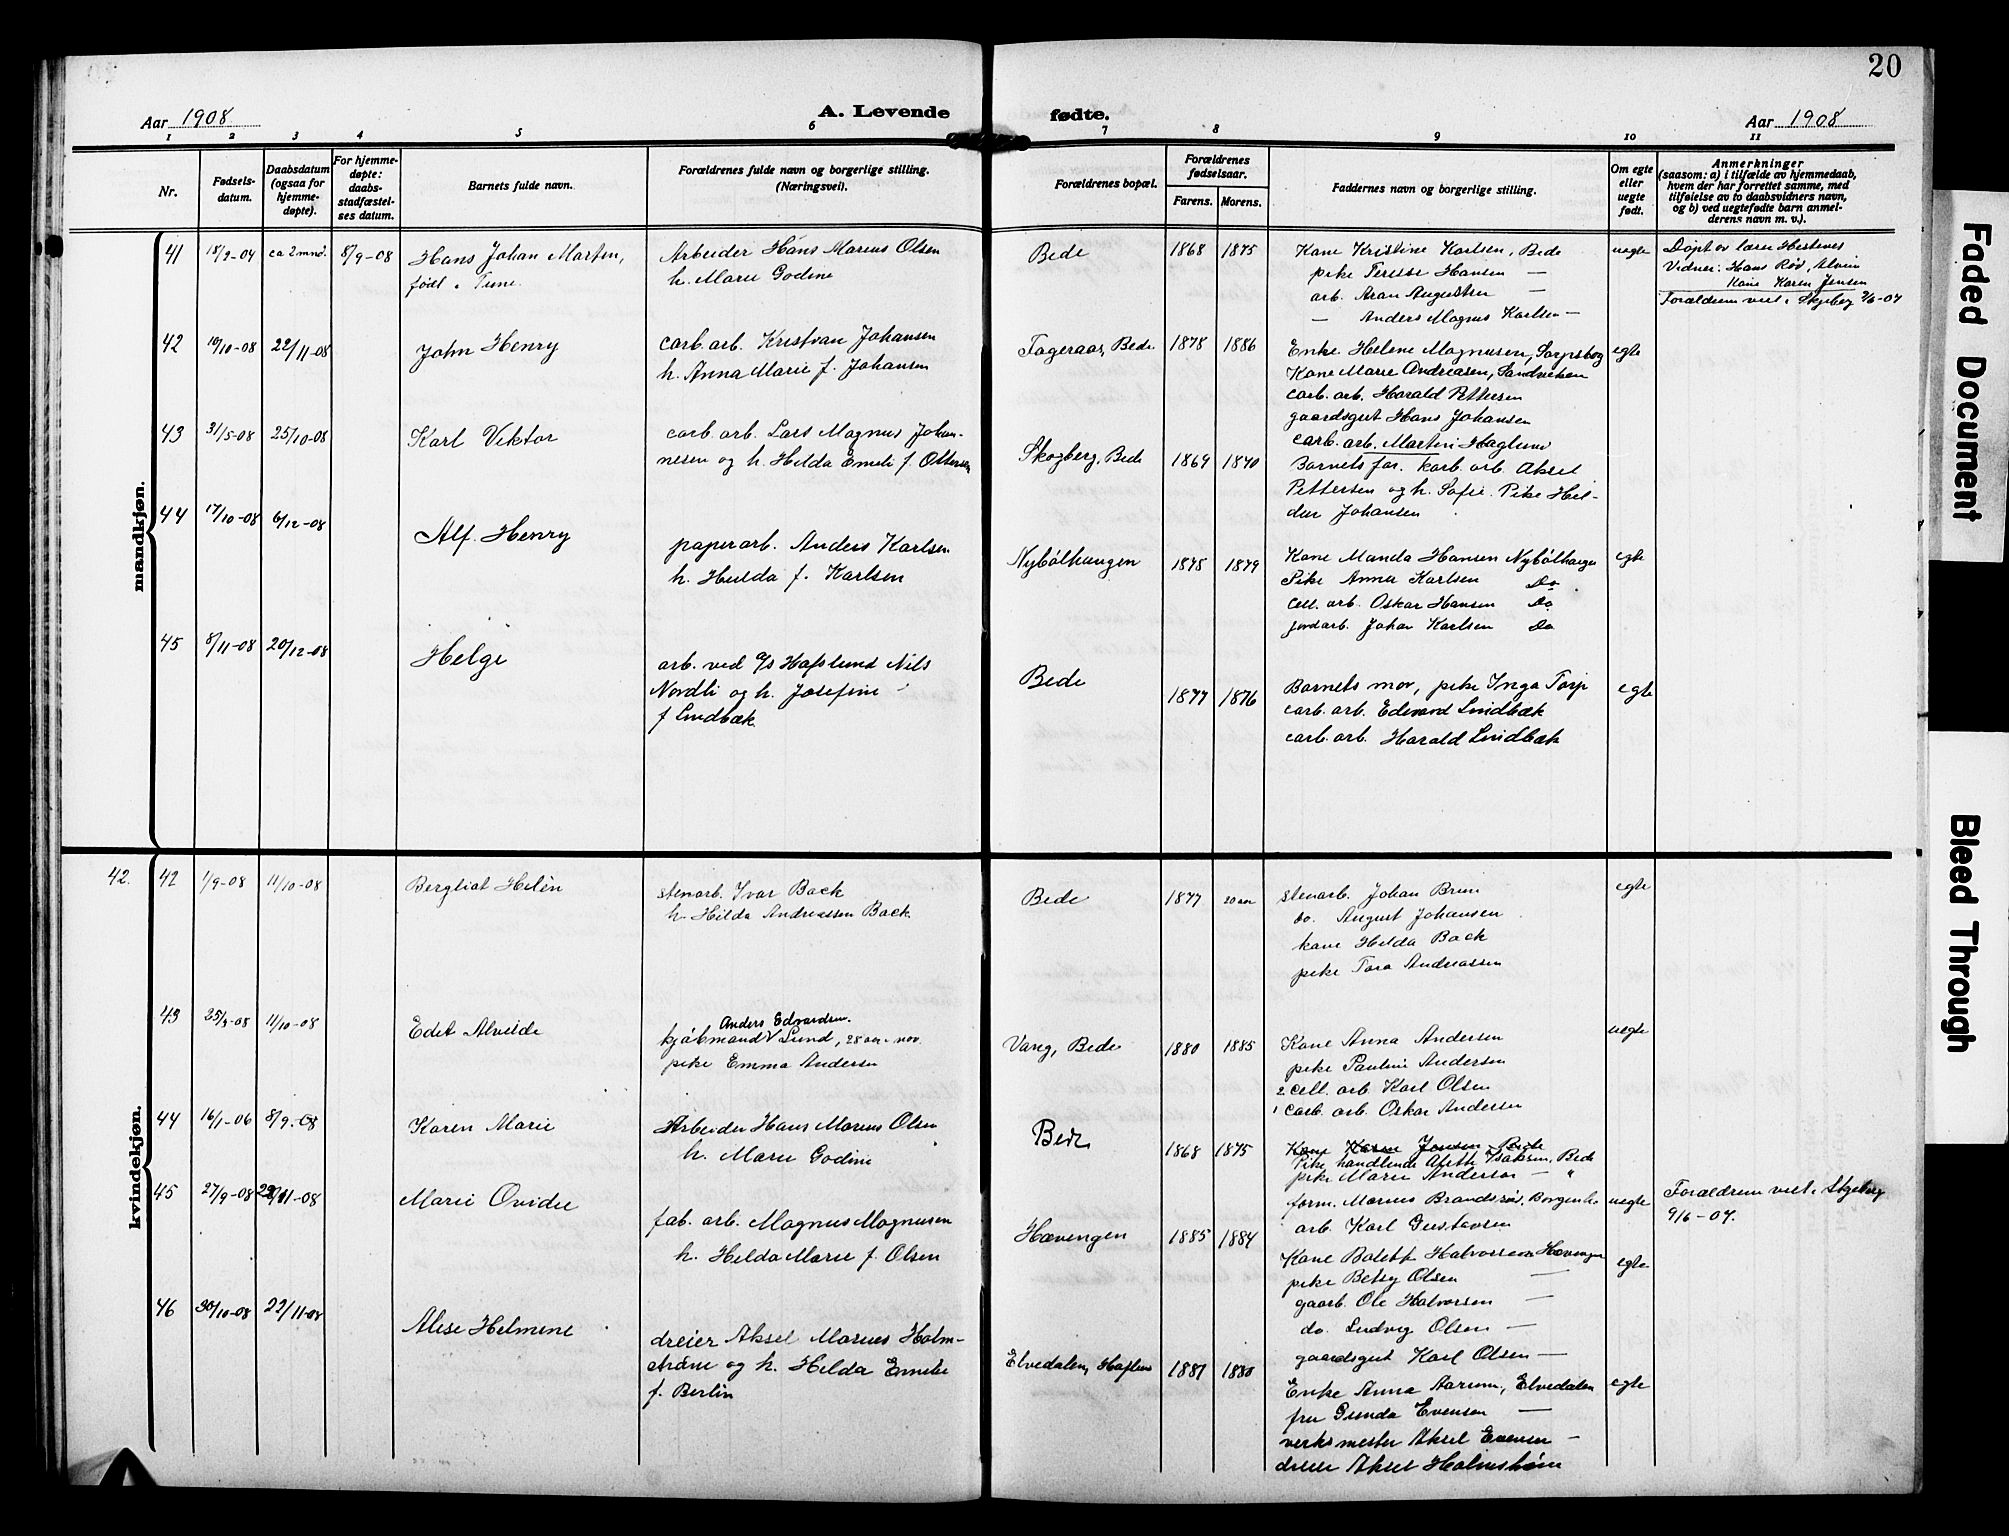 20
Aar 1908
A. Levende
fødte.
Aar 1908
1 2 3 4 5 6 7 8 9 10 11
Nr.
Fødsels-
datum.
Daabsdatum
(ogsaa for
hjemme-
døpte).
For hjemme-
døpte:
daabs-
stadfæstel-
ses datum.
Barnets fulde navn.
Forældrenes fulde navn og borgerlige stilling.
(Næringsvei).
Forældrenes bopæl.
Forældrenes
fødselsaar.
Farens. Morens.
Faddernes navn og borgerlige stilling.
Om egte
eller
uegte
født.
Anmerkninger
(saasom: a) i tilfælde av hjemmedaab,
hvem der har forrettet samme, med
tilføielse av to daabsvidners navn,
og b) ved uegtefødte barn anmel-
derens navn m. v.).
mandkjøn.
41 18/2-04 ca 2 mnd. 8/9-08
Hans Johan Marten,
født i Tune.
Arbeider Hans Marius Olsen
h. Marie Godine
Bede 1868 1875
Kane Kristine Karlsen, Bede
pike Terese Hansen —
arb. Aran Augustsen —
— Anders Magnus Karlsen —
uegte
Døpt av lærer Hestenes
Vidner: Hans Rød, Alvin
Kane Karen Jensen
Forældrene viet i Skjeberg 9/6-07
42 19/10-08 22/11-08
John Henry
carb. arb. Kristian Johansen
h. Anna Marie f. Johansen
Fageraas, Bede 1878 1886
Enke Helene Magnusen, Sarpsborg
Kane Marie Andreasen, Sandviken
carb. arb. Harald Pettersen
gaardsgut Hans Johansen
carb. arb. Martin Haglund
egte
43 31/5-08 25/10-08
Karl Viktor
carb. arb. Lars Magnus Johan-
nesen og h. Hilda Emeli f. Ottersen
Skogberg, Bede 1869 1870
Barnets far. karb. arb. Aksel
Pettersen og h. Sofie. Pike Hil-
dur Johansen
44 17/10-08 6/12-08
Alf. Henry
papirarb. Anders Karlsen
h. Hulda f. Karlsen
Nybølhaugen 1878 1879
Kone Manda Hansen Nybølhaugen
Pike Anna Karlsen Do
Cell. arb. Oskar Hansen Do
jordarb. Johan Karlsen Do
egte
45 8/11-08 20/12-08
Helge
arb. ved a/s Hafslund Nils
Nordli og h. Josefine
f Lindbæk
Bede 1877 1876
Barnets mor, pike Inga Torp
carb. arb. Edvard Lindbæk
carb. arb. Harald Lindbæk
egte
kvindekjøn.
42. 42 1/9-08 11/10-08
Bergliot Helén
stenarb. Ivar Back
h. Hilda Andreassen Back
Bede 1877 20 aar
stenarb. Johan Brun
do. August Johansen
kane Hilda Back
pike Tora Andreassen
egte
43 25/7-08 11/10-08
Edit Alvilde
Anders Edvardsen
kjøbmand V Lund, 28 aar i nov.
pike Emma Andersen
Vang, Bede 1880 1885
Kane Anna Andersen
pike Pauline Andersen
2 cell. arb. Karl Olsen
1 carb. arb. Oskar Andersen
uegte
44 16/1-06 8/9-08
Karen Marie
Arbeider Hans Marius Olsen
h. Marie Godine
Bede 1868 1875
Kane Karen Jensen, Bede
Pike, handlende Isaksen, Bede
pike Marie Anderson — "
form. Marius Brandsrød, Borgenh.
arb. Karl Gustavsen
uegte
Forældrene viet i Skjeberg
9/6-07.
45 27/9-08 22/11-08
Marie Ovidie
fab. arb. Magnus Magnusen
h. Hilda Marie f. Olsen
Hævengen 1885 1884
Kane Bolette Halvorsen Hævengen
pike Betsy Olsen —
gaarb. Ole Halvorsen —
do. Ludvig Olsen —
gaardsgut Karl Olsen —
egte
46 30/10-08 22/11-08
Alise Helmine
dreier Aksel Marius Holm-
strøm og h. Hilda Emelie
f. Berlin
Elvedalen, Hafslund 1881 1880
Enke Anna Aarum, Elvedalen
fru Gunda Evensen —
verksmester Aksel Evensen —
dreier Aksel Holmstrøm
egte
Faded Document
Bleed Through